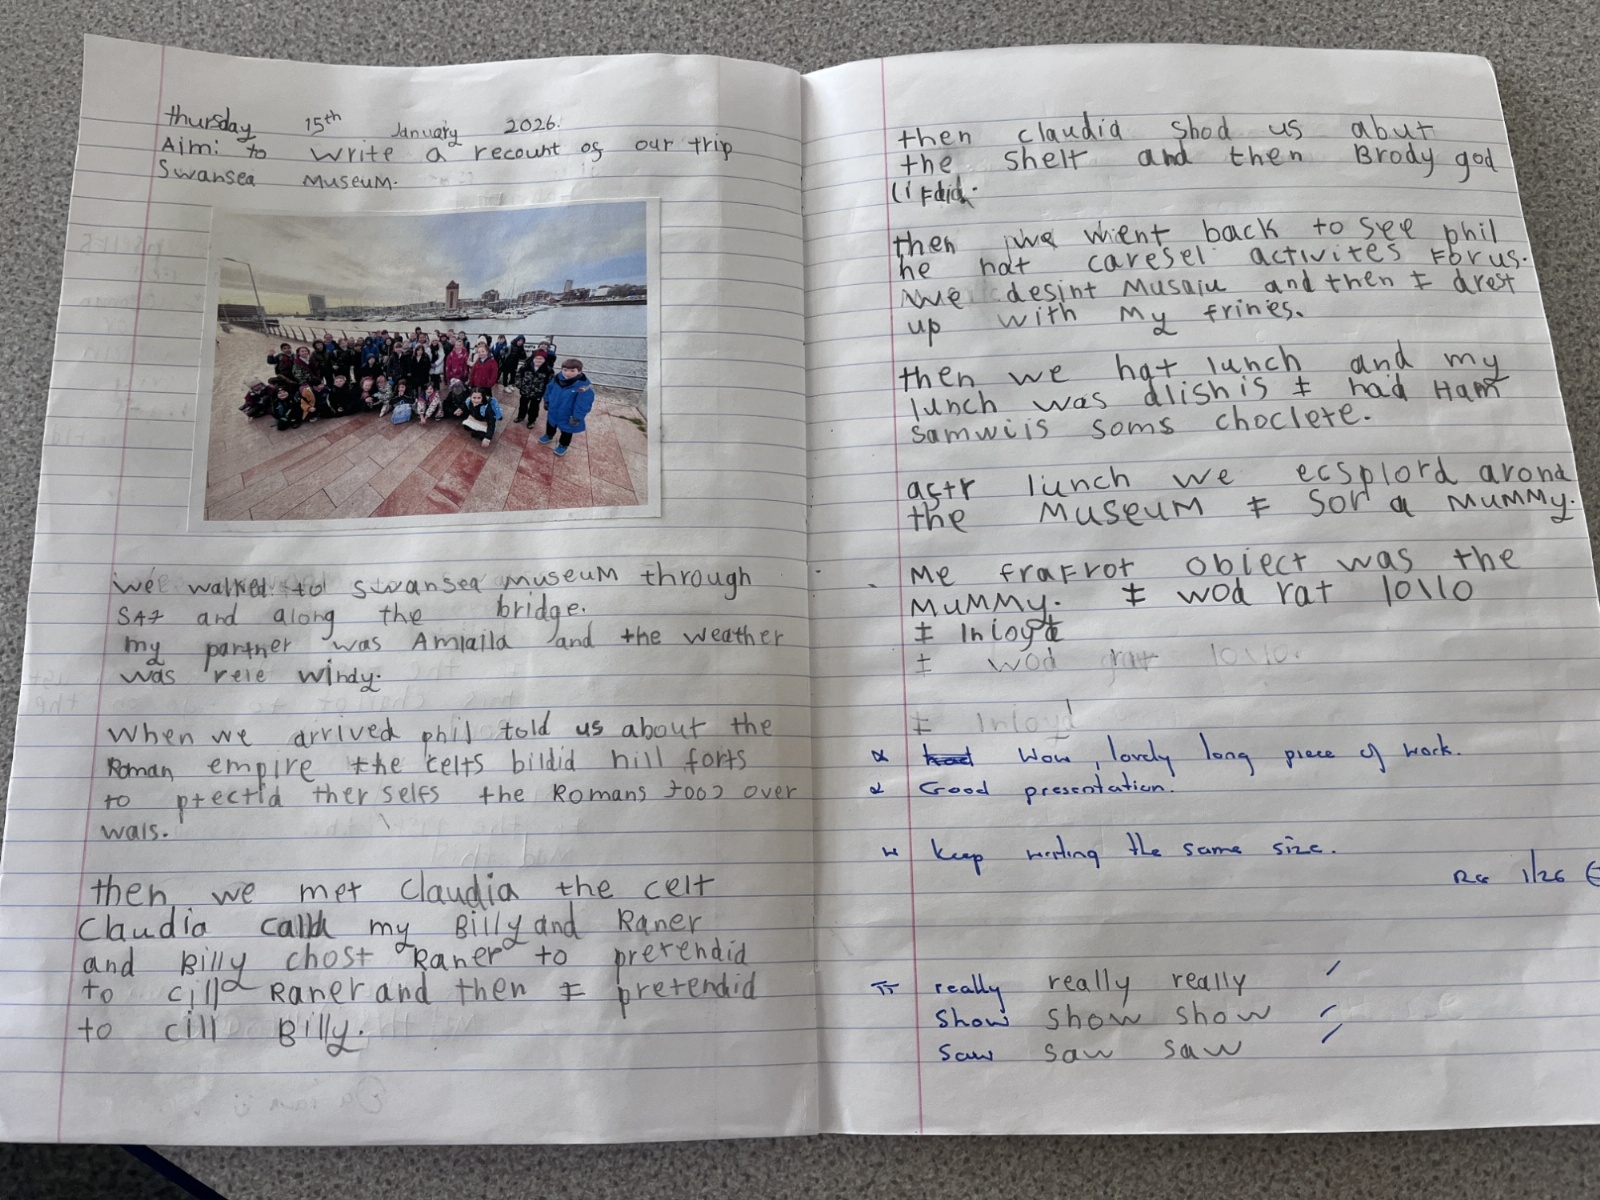 thursday 15th January 2026.
Aim: to write a recount of our trip
Swansea Museum.
we walked to Swansea Museum through
SA1 and along the bridge.
my partner was Amiaila and the weather
was reie windy.
when we arrived phil told us about the
Roman empire the celts bildid hill forts
to ptectid ther selfs the Romans over
wals.
then we met Claudia the celt
Claudia my Billy and Raner
and Billy chost Raner to pretendid
to cill Raner and then I pretendid
to cill Billy.
then claudia shod us abut
the shelt and then Brody god
then we went back to see phil
he hat caresel activites For us.
we desint Musaiu and then I drest
up with My frines.
then we hat lunch and my
lunch was dlishis I had Ham
samwiis soms choclete.
aftr lunch we ecsplord arond
the Museum I Sor a MUMMy.
Me fraFrot obiect was the
MUMMy. I wod rat 10\10
I Inioyd
I wod rat 10\10.
I Inioyd
Wow, lovely long piece of work.
Good presentation.
Keep writing the same size.
RG 1/26
really really really
Show show show
Saw saw saw